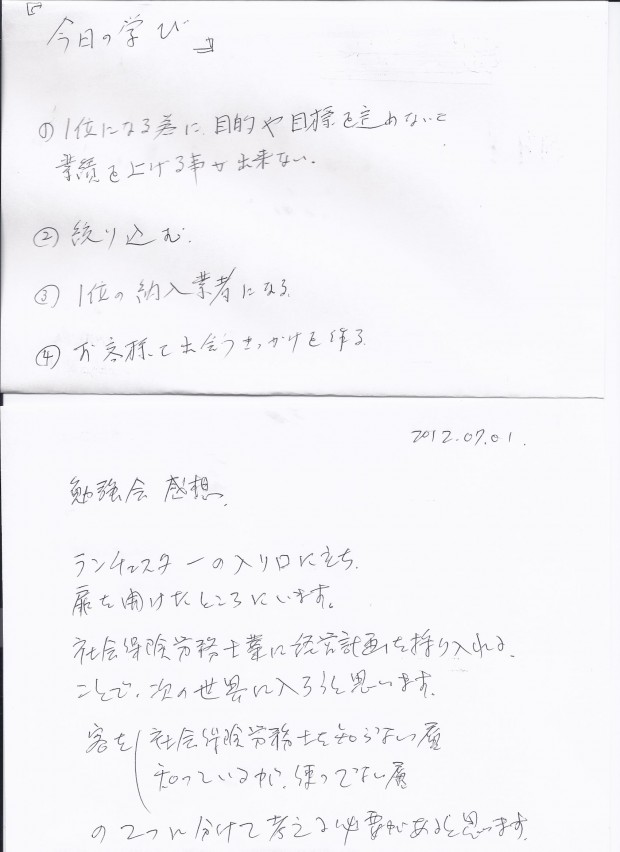 『今日の学び』
① 1位になる為に、目的や目標を定めないと
業績を上げる事が出来ない。
② 絞り込む。
③ 1位の納入業者になる
④ お客様と出会うきっかけを作る
2012.07.01.
勉強会 感想。
ランチェスターの入り口に立ち、
扉を開けたところにいます。
社会保険労務士業に経営計画を採り入れる
ことで、次の世界に入ろうと思います。
客を 社会保険労務士を知らない層
知っているが、使ってない層
の2つに分けて考える必要があると思います。